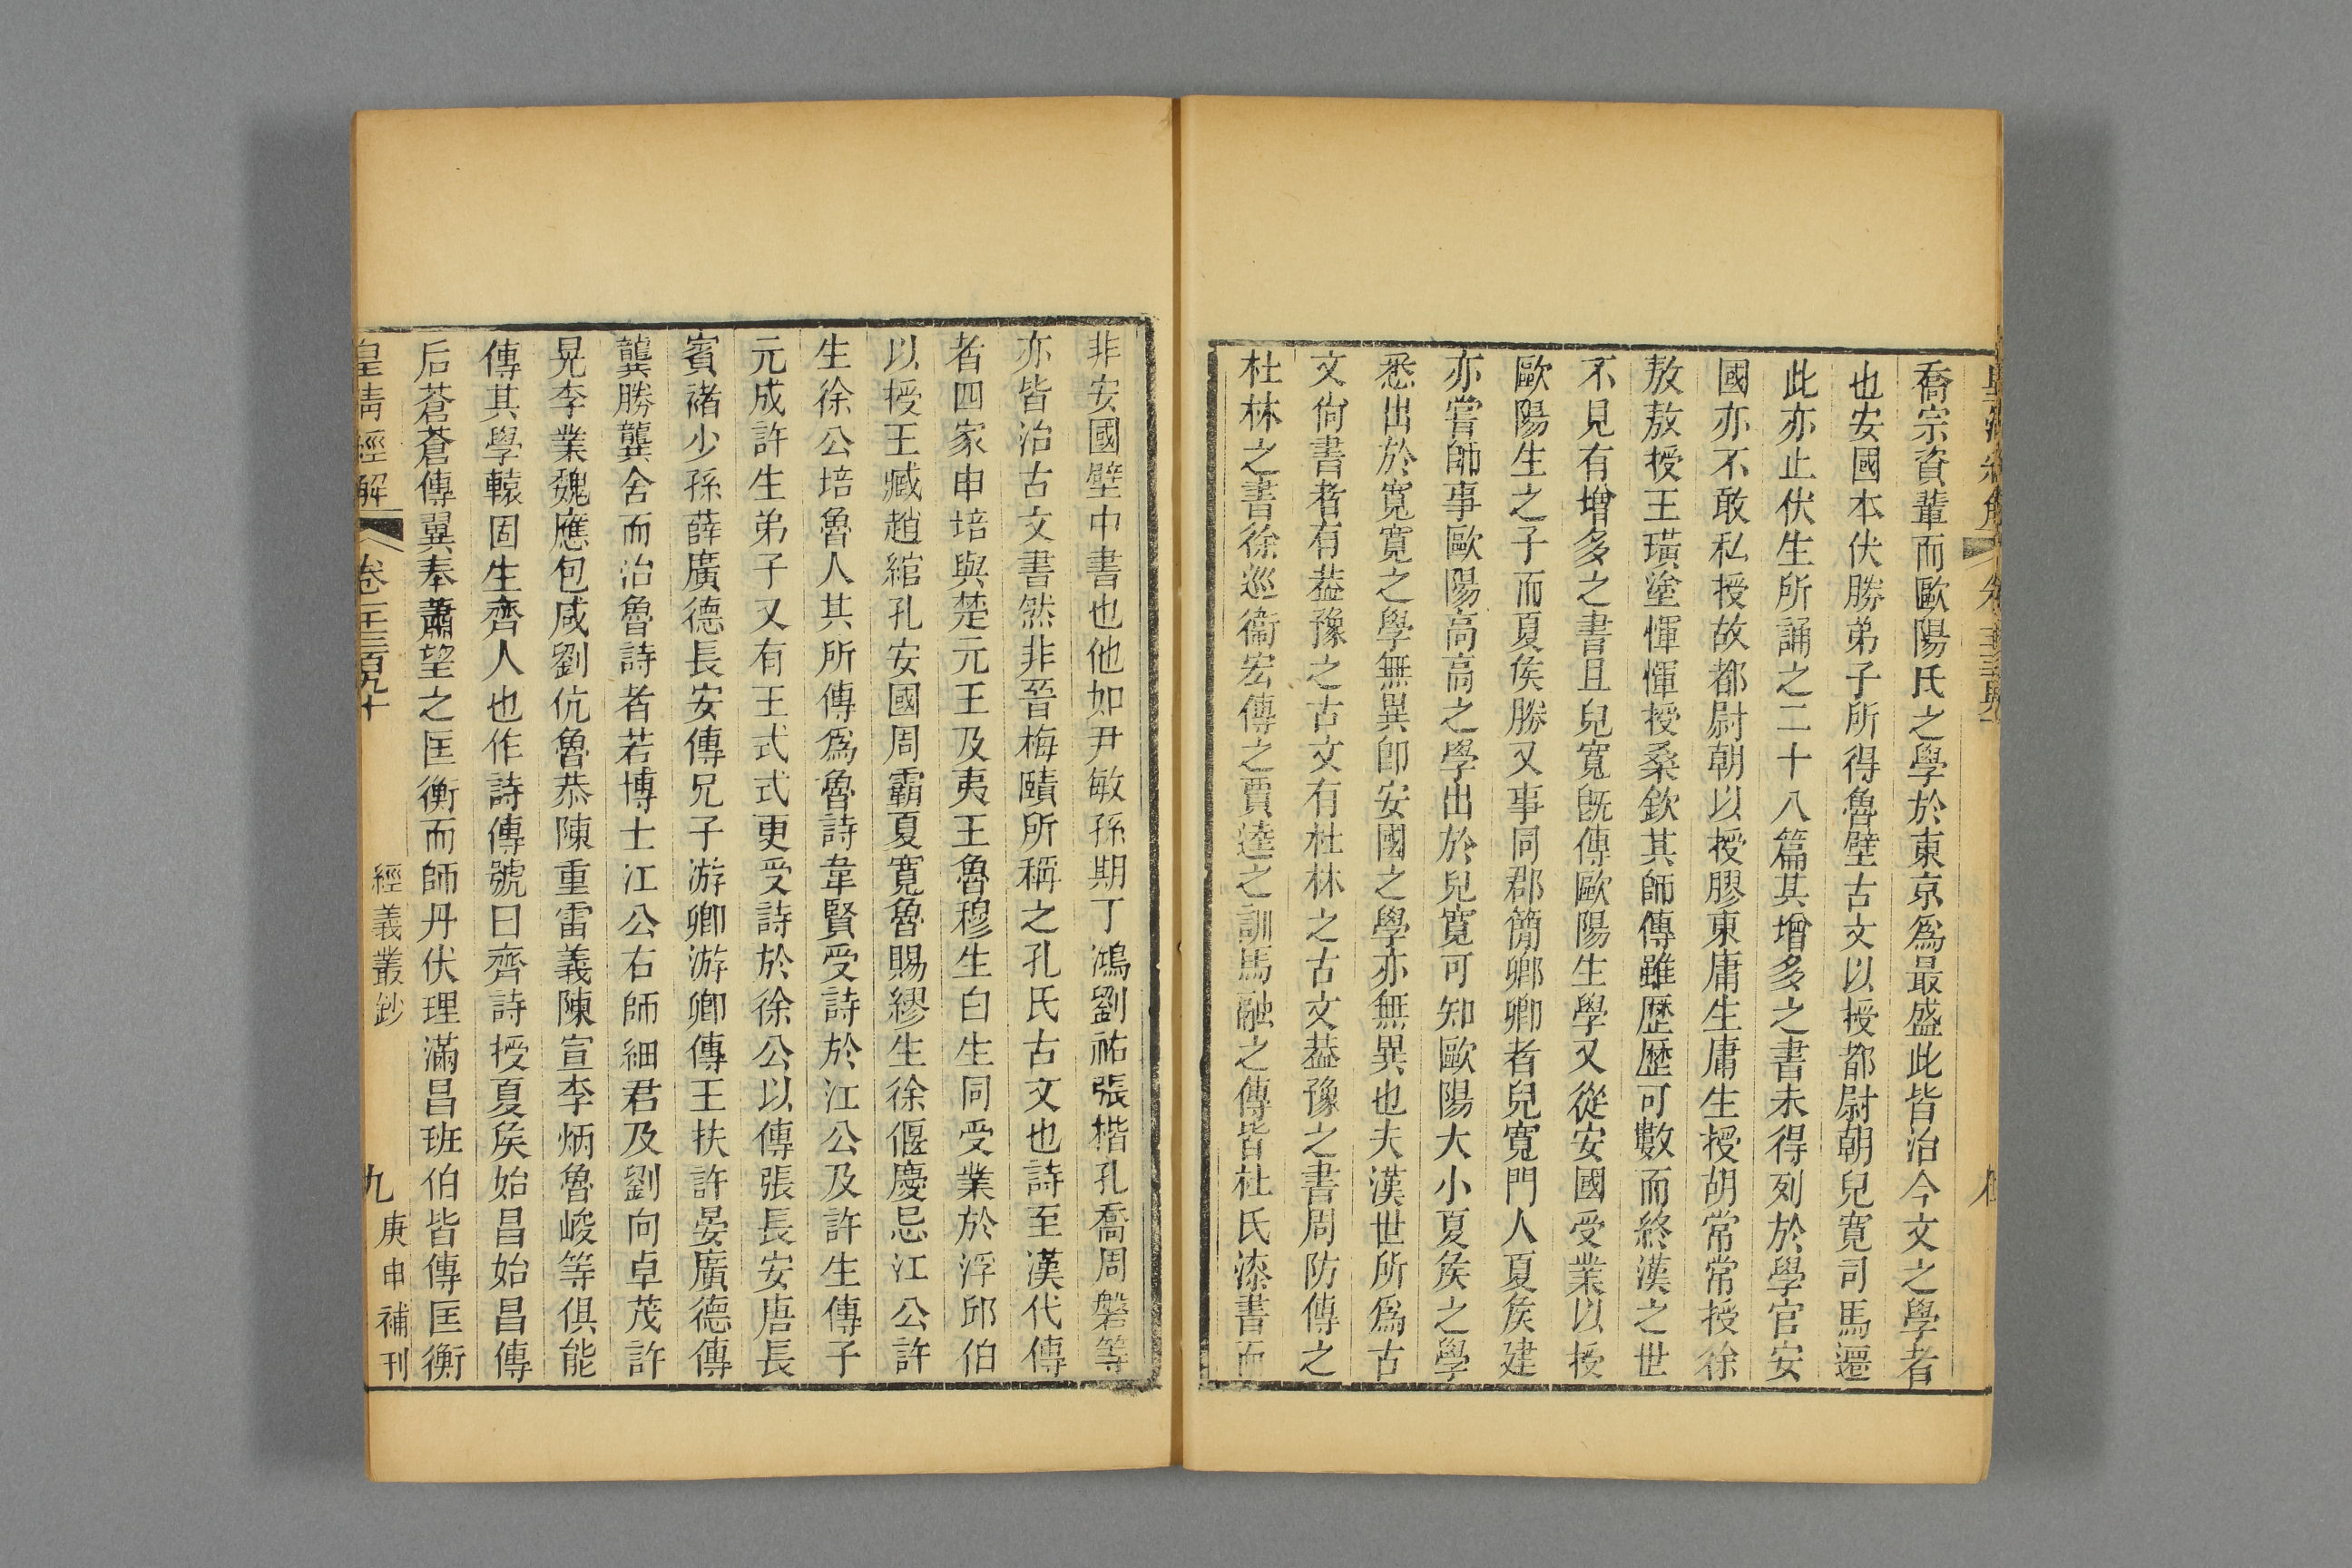 喬宗資輩而歐陽氏之學於東京爲最盛此皆治今文之學者
也安國本伏勝弟子所得魯壁古文以授都尉朝兒寬司馬遷
此亦止伏生所誦之二十八篇其增多之書未得列於學官安
國亦不敢私授故都尉朝以授膠東庸生庸生授胡常常授徐
敖敖授王璜塗惲惲授桑欽其師傳雖歷歷可數而終漢之世
不見有增多之書且兒寬旣傳歐陽生學又從安國受業以授
歐陽生之子而夏矦勝又事同郡簡卿卿者兒寬門人夏矦建
亦嘗師事歐陽高高之學出於兒寬可知歐陽大小夏矦之學
悉出於寬寬之學無異卽安國之學亦無異也夫漢世所爲古
文尙書者有葢豫之古文有杜林之古文葢豫之書周防傳之
杜林之書徐巡衞宏傳之賈逵之訓馬融之傳皆杜氏漆書而
非安國壁中書也他如尹敏孫期丁鴻劉祐張楷孔喬周磐等
亦皆治古文書然非晉梅賾所稱之孔氏古文也詩至漢代傳
者四家申培與楚元王及夷王魯穆生白生同受業於浮邱伯
以授王臧趙綰孔安國周霸夏寬魯賜繆生徐偃慶忌江公許
生徐公培魯人其所傳爲魯詩韋賢受詩於江公及許生傳子
元成許生弟子又有王式式更受詩於徐公以傳張長安唐長
賓褚少孫薛廣德長安傳兄子游卿游卿傳王扶許晏廣德傳
龔勝龔舍而治魯詩者若博士江公右師細君及劉向卓茂許
晃李業魏應包咸劉伉魯恭陳重雷義陳宣李炳魯峻等俱能
傳其學轅固生齊人也作詩傳號曰齊詩授夏矦始昌始昌傳
后蒼蒼傳翼奉蕭望之匡衡而師丹伏理滿昌班伯皆傳匡衡
皇淸經解 卷一千三百九十 經義叢鈔 九 庚申補刊